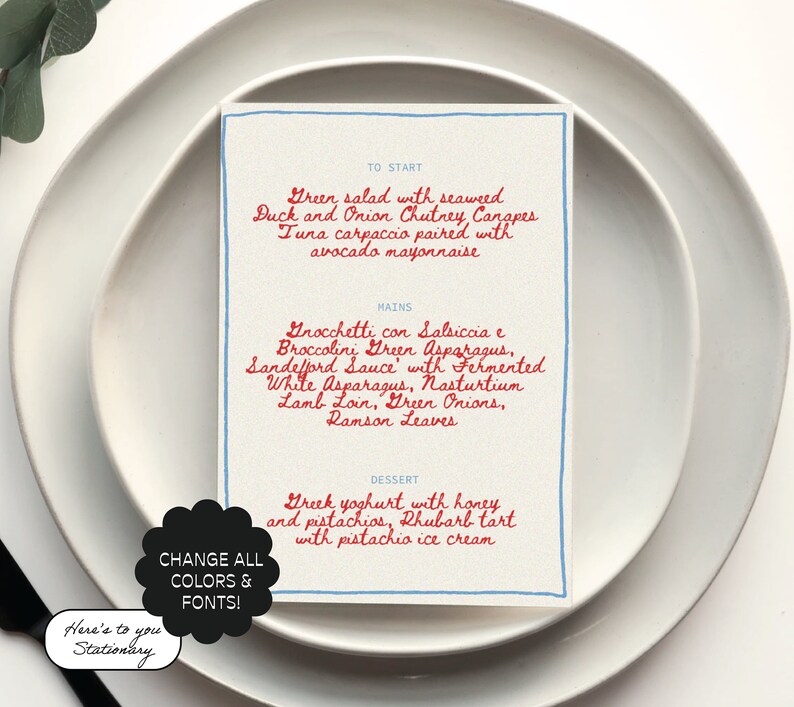 TO START
Green salad with seaweed
Duck and Onion Chutney Canapes
Tuna carpaccio paired with
avocado mayonnaise
MAINS
Gnocchetti con Salsiccia e
Broccolini Green Asparagus,
Sandefjord Sauce' with Fermented
White Asparagus, Nasturtium
Lamb Loin, Green Onions,
Ramson Leaves
DESSERT
Greek yoghurt with honey
and pistachios, Rhubarb tart
with pistachio ice cream
CHANGE ALL
COLORS &
FONTS!
Here's to you
Stationary